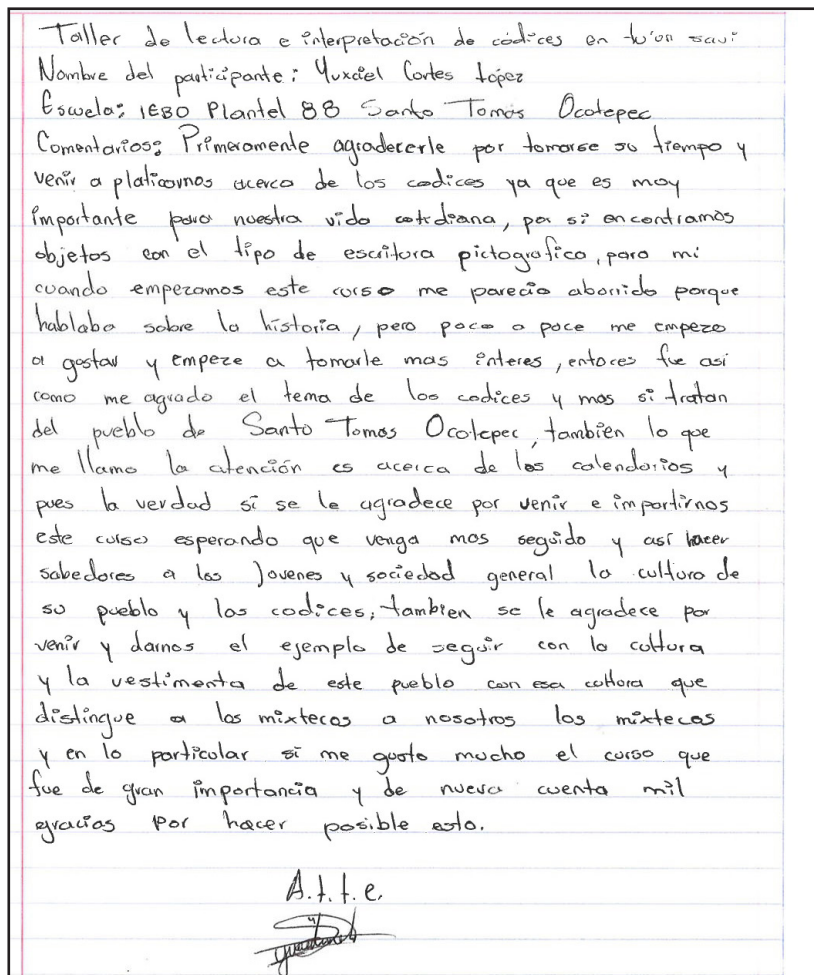 Taller de lectura e interpretación de códices en tu'un savi
Nombre del participante: Yuxciel Cortes López
Escuela: IEBO Plantel 88 Santo Tomas Ocotepec
Comentarios: Primeramente agradecerle por tomarse su tiempo y
venir a platicarnos acerca de los codices ya que es muy
importante para nuestra vida cotidiana, por si encontramos
objetos con el tipo de escritura pictografica, para mi
cuando empezamos este curso me parecio aborrido porque
hablaba sobre la historia, pero poco a poco me empezo
a gostar y empeze a tomarle mas interes, entoces fue asi
como me agrado el tema de los codices y mas si tratan
del pueblo de Santo Tomas Ocotepec, tambien lo que
me llamo la atención es acerca de los calendarios y
pues la verdad si se le agradece por venir e impartirnos
este curso esperando que venga mas seguido y así hacer
sabedores a los Jovenes y sociedad general la cultura de
su pueblo y los codices; tambien se le agradece por
venir y darnos el ejemplo de seguir con la cultura
y la vestimenta de este pueblo con esa cultura que
distingue a los mixtecos a nosotros los mixtecos
y en lo particular si me gusto mucho el curso que
fue de gran importancia y de nueva cuenta mil
gracias por hacer posible esto.
A.t.t.e.